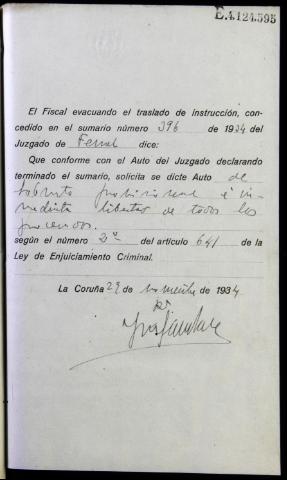 E.4.124.595
El Fiscal evacuando el traslado de instrucción, con-
cedido en el sumario número 396 de 1934 del
Juzgado de Ferrol dice:
Que conforme con el Auto del Juzgado declarando
terminado el sumario, solicita se dicte Auto de
provisional é in-
mediata libertad de todos los
procesados.
según el número 2º del artículo 641 de la
Ley de Enjuiciamiento Criminal.
La Coruña 29 de noviembre de 1934